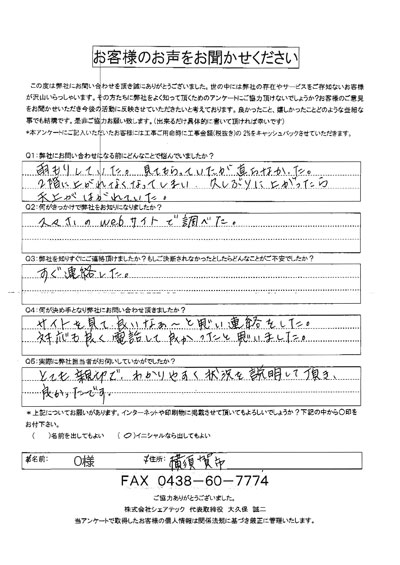 お客様のお声をお聞かせください
この度は弊社にお問い合わせを頂き誠にありがとうございました。世の中には弊社の存在やサービスをご存知ないお客様
が沢山いらっしゃいます。その方たちに弊社をよく知って頂くためのアンケートにご協力頂けないでしょうか?お客様のご意見
をお聞かせいただき今後の活動に反映させていただきたいと考えております。良かったこと、嬉しかったことどのような些細な
事でも結構です。是非ご協力お願い致します。(出来るだけ具体的に書いて頂ければ幸いです)
*本アンケートにご記入いただいたお客様には工事ご用命時に工事金額(税抜き)の2%をキャッシュバックさせていただきます。
Q1:弊社にお問い合わせになる前にどんなことで悩んでいましたか?
雨もりしていた。見てもらっていたが直らなかった。
2階に上がれなくなってしまい、久しぶりに上がったら
天上がはがれていた。
Q2:何がきっかけで弊社をお知りになりましたか?
スマホのwebサイトで調べた。
Q3:弊社を知りすぐにご連絡頂けましたか?もしご決断されなかったとしたらどんなことがご不安でしたか?
すぐ連絡した。
Q4:何が決め手となり弊社にお問い合わせ頂きましたか?
サイトを見て良いなぁ〜と思い連絡をした。
対応も良く電話して良かったと思いました。
Q5:実際に弊社担当者がお伺いしていかがでしたか?
とても親切で、わかりやすく状況を説明して頂き、
良かったです。
*上記についてお願いがあります。インターネットや印刷物に掲載させて頂いてもよろしいでしょうか?下記の中から〇印を
お付け下さい。
( )名前を出してもよい (〇)イニシャルなら出してもよい
お名前: O様 ご住所: 横須賀市
FAX 0438-60-7774
ご協力ありがとうございました。
株式会社シェアテック 代表取締役 大久保 誠二
当アンケートで取得したお客様の個人情報は関係法規に基づき厳正に管理いたします。